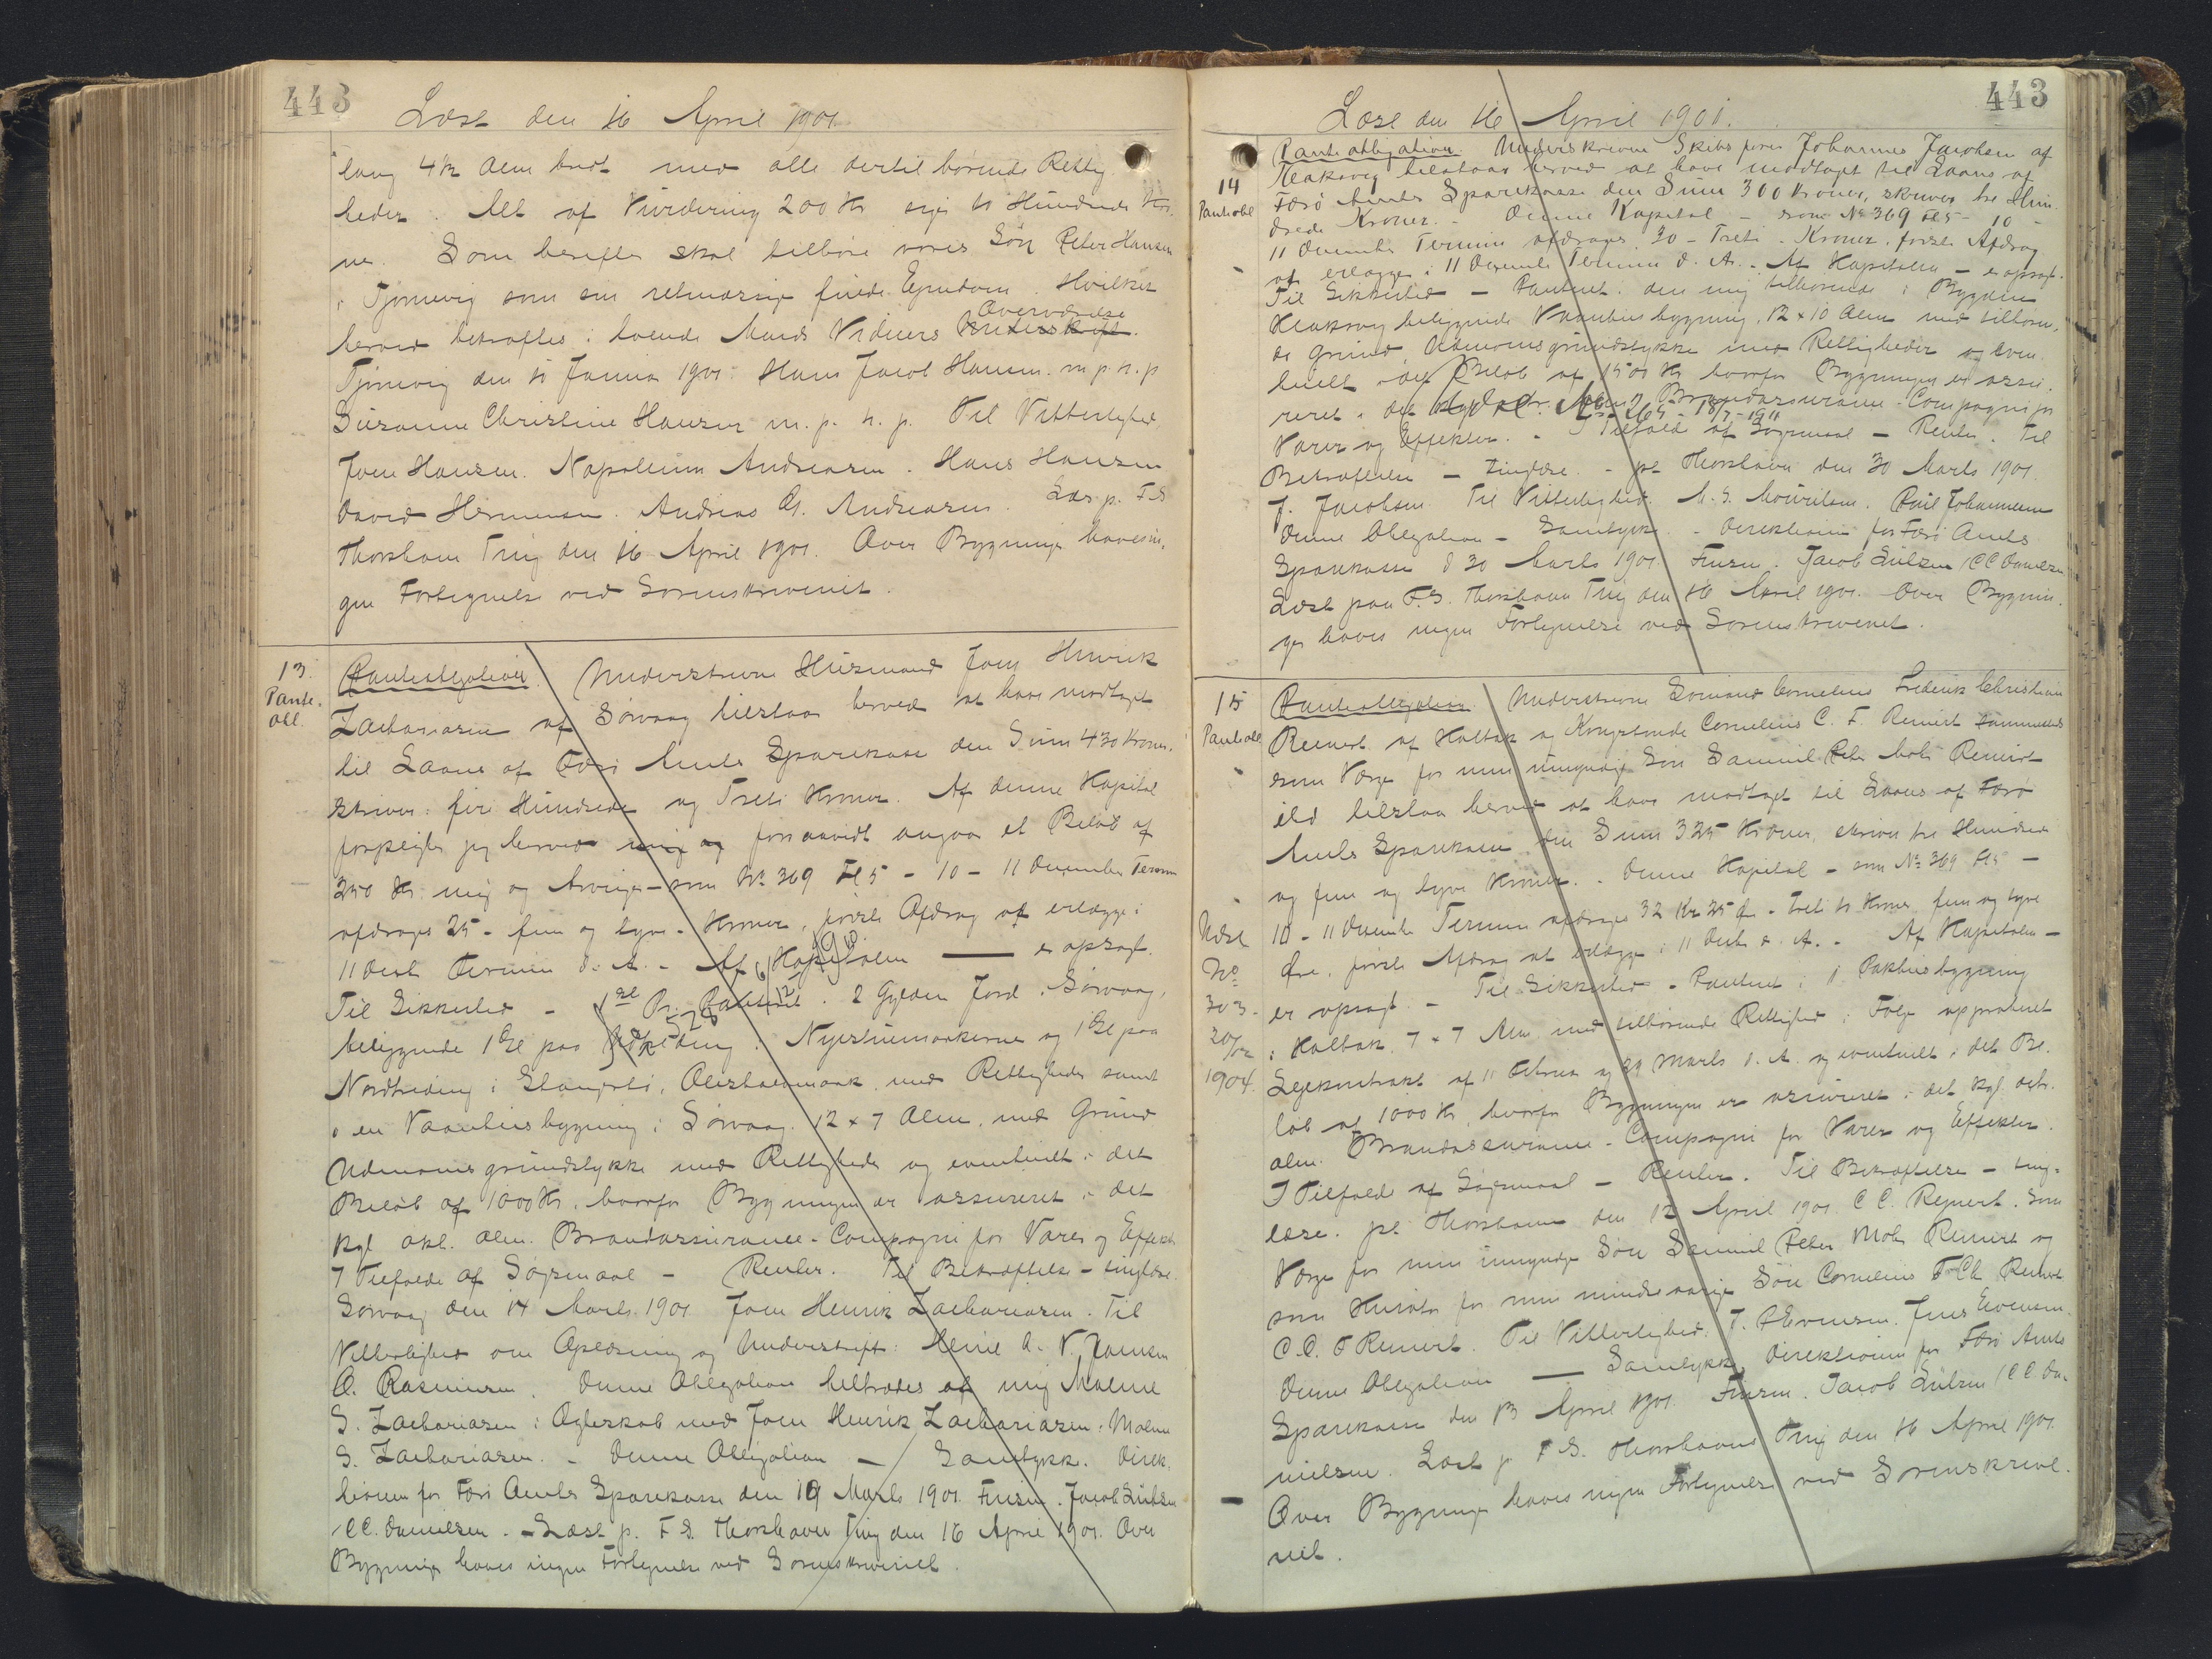 443
Læst den 16 April 1901.
lang 4 1/2 Alen bredt med alle dertil hørende Rettig
heder. Alt af Vurdering 200 Kr siger to Hundrede Kro
ner. Som herefter skal tilhøre vores Søn Peter Hansen
i Tjørnevig som sin retmæssige Ejendom. Hvilket
Overværelse
herved bekræftes i hoende Mænds Vidners Underskrift.
Tjørnevig den Januar 1901. Hans Jacob Hansen m. p. n. p
Susanne Christine Hansen m. p. n. p. Til Vitterlighed
Joen Hansen. Napoleon Andreasen. Hans Hansen
David Hermansen. Andreas A. Andreasen. Læs p. F. S
Thorshavn Ting den 16 April 1901. Over Bygninger haves in,
gen Fortegnelse ved Sorenskriveriet.
13.
Pante.
obl.
Panteobligation. Underskrevne Husmand Joen Henrik
Zachariasen af Sørvaag tilstaar herved at have modtaget
til Laans af Færø Amts Sparekasse den Sum 430 Kroner,
skriver: fire Hundrede og Treti Kroner. Af denne Kapital
forpligter jeg herved mig og forsaavidt angaar et Beløb af
250 Kr. mig og Arvinger - som No 369 Fl 5 - 10 - 11 December Termin
afdrages 25 - fem og tyve - Kroner, første Afdrag at erlægge i
11 Decb Termin d. A. - Af Kapitalen — er opsagt.
Til Sikkerhed - 1ste Pr. Panteret. 2 Gylden Jord i Sørvaag,
beliggende 1 Gl paa i Nyestuemarkerne og 1 Gl paa
Nordheding i Stangsti, Olestuemark, med Rettigheder samt
i en Vaanhusbygning i Sørvaag. 12 x 7 Alen, med Grund
Udenomsgrundstykke med Rettigheder og eventuelt i det
Beløb af 1000 Kr, hvorfor Bygningen er assureret i det
kgl okt. alm. Brandassurance-Compagni for Varer og Effekter
I Tilfælde af Søgsmaal - Renter. Til Bekræftelse - tinglæse.
Sørvaag den 14 Marts 1901 Joen Henrik Zachariasen. Til
Vitterlighed om Oplæsning og Underskrift: A. V. Joensen
O. Rasmussen. Denne Obligation tiltrædes af mig Malene
S. Zachariasen i Ægteskab med Joen Henrik Zachariasen. Malene
S. Zachariasen. - Denne Obligation - Samtykke. Direk,
tionen for Færø Amts Sparekasse den 19 Marts 1901 Finsen. Jacob Lützen
/CC. Danielsen. - Læst p. F S. Thorshavn Ting den 16 April 1901. Over
Bygninger haves ingen Fortegnelse ved Sorenskriveriet.
443
Læst den 16 April 1901.
14
Panteobl
Panteobligation. Underskrevne Skibsfører Johannes Jacobsen af
Klaksvig tilstaar herved at have modtaget til Laans af
Færø Amts Sparekasse den Sum 300 Kroner, skriver tre Hun
drede Kroner. - Denne Kapital - som No 369 Fl 5 - 10
11 December Termin afdrages 30 - Treti - Kroner, første Afdrag
at erlægge i 11 Decemb Termin d. A. - Af Kapitalen - er opsagt.
Til Sikkerhed - Panteret i den mig tilhørende i Bygden
Klaksvig beliggende Vaanhusbygning, 12 x 10 Alen med tilhøren,
de Grund, Udenomsgrundstykke med Rettigheder og even
tuelt i det Beløb af 1500 Kr hvorfor Bygningen er assu,
reret i det Brandassurance-Compagni for
265 - 18/7 - 1911
Varer og Effekter. - I Tilfælde af Søgsmaal - Renter. Til
Bekræftelse - tinglæse. - pt Thorshavn den 30 Marts 1901.
J. Jacobsen. Til Vitterlighed. M. S. Mouritsen. Poul Johannesen
Denne Obligation - Samtykke. - Direktionen for Færø Amts
Sparekasse d 30 Marts 1901 Finsen. Jacob Lützen /CC Danielsen
Læst paa F. S. Thorshavn Ting den 16 April 1901. Over Bygnin,
ger haves ingen Fortegnelse ved Sorenskriveriet.
15
Panteobl
Udsl
No
303 -
20/12
1904.
Panteobligation. Underskrevne Sømand Cornelius Frederik Christian
Reinert af Kaltbak og Kongsbonde Cornelius C. F. Reinert sammesteds
som Værge for min umyndige Søn Samuel Peter Mohr Reinert
tilstaa herved at have modtaget til Laans af Færø
Amts Sparekasse den Sum 325 Kroner, skriver tre Hundrede
og fem og tyve Kroner. - Denne Kapital - som No 369 Fl 5 -
10 - 11 December Termin afdrages 32 Kr 25 Øre - Treti to Kroner, fem og tyve
Øre, første Afdrag at erlægge i 11 Decbr d. A. - Af Kapitalen -
er opsagt - Til Sikkerhed - Panteret i 1 Pakhusbygning
i Kaltbak 7 x 7 Alen med tilhørende Rettighed i Følge approberet
Lejekontrakt af 11 Februar og 29 Marts d. A. og eventuelt i det Be,
løb af 1000 Kr, hvorfor Bygningen er assureret i det kgl. octr.
alm. Brandassurance-Compagni for Varer og Effekter.
I Tilfælde af Søgsmaal - Renter. Til Bekræftelse - ting=
læse. pt Thorshavn den 12 April 1901. C C. Reinert. Som
Værge for min umyndige Søn Samuel Peter Mohr Reinert og
som Kurator for min mindreaarige Søn Cornelius F. Ch Reinert
C. C. F Reinert. Til Vitterlighed. J. Evensen. Jens Evensen.
Denne Obligation — Samtykke, Direktionen for Færø Amts
Sparekasse den 13 April 1901. Finsen. Jacob Lützen /C C. Da,
nielsen. Læst p F S. Thorshavns Ting den 16 April 1901.
Over Bygninger haves ingen Fortegnelse ved Sorenskrive,
riet.